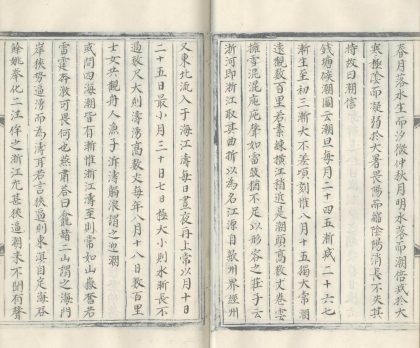 春月落水生而汐微仲秋月明水落而潮倍减於大
寒極陰而凝弱於大暑畏陽而縮陰陽消長不失其
時故曰潮信
錢塘候潮圖云潮旦每月二十四五漸减二十六七
漸生至初三漸大不差頃刻惟八月十五獨大常潮
遠觀數百里若素練横江稍近見潮頭高數丈卷雲
擁雪混混庉庉聲如雷鼓猶不足以形容之莊子云
浙河即浙江取其曲折以為名江源自歙州界經州
又東北流入于海江濤每日晝夜再上常以月十日
二十五日最小月三日十八日極大小則水漸長不
過數尺大則濤湧高數丈每年八月十八日數百里
士女共觀舟人漁子泝濤觸浪謂之迎潮
或問四海潮皆有漸惟浙江濤至則常如山嶽奮若
雷霆奔激可畏何也燕肅答曰龕赭二山謂之海門
岸狹勢逼湧而為濤耳若言狹逼則東溟自定海吞
餘姚奉化二江侔之浙江尤甚狹逼潮來不聞有聲